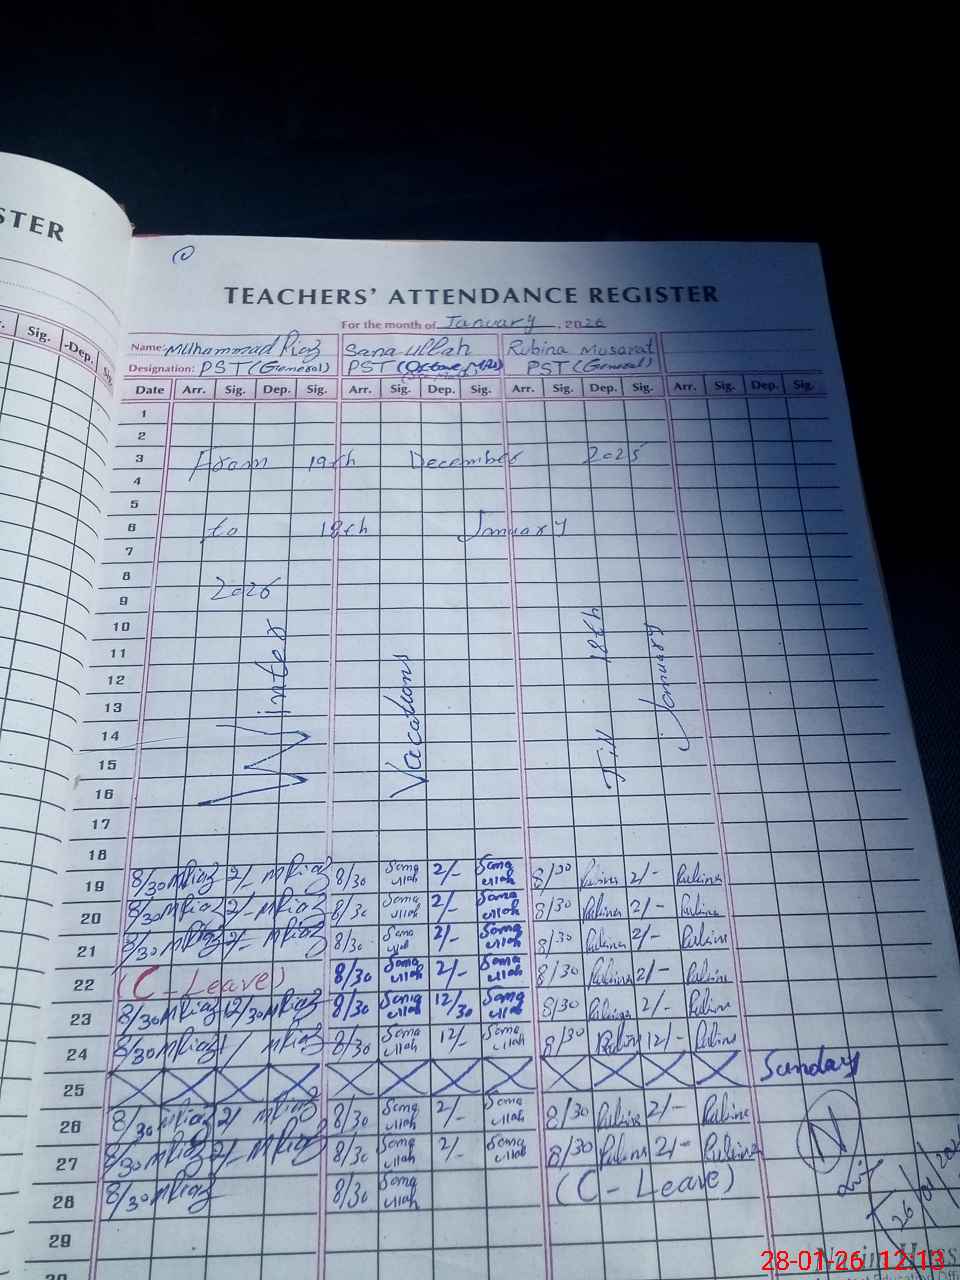 STER
Sig.
Dep.
TEACHERS' ATTENDANCE REGISTER
For the month of January, 2026
Name: Muhammad Riaz Sana Ullah Rubina Musarat
Designation: PST (General) PST PST (General)
Date Arr. Sig. Dep. Sig. Arr. Sig. Dep. Sig. Arr. Sig. Dep. Sig. Arr. Sig. Dep. Sig.
1
2
3 From 19th December 2025
4
5
6 to 18th January
7
8
9 2026
10
11
12
13
14
15
16
Winter
Vacations
Till 18th
January
17
18
19 8/30 MRiaz 2/- MRiaz 8/30 Sana ullah 2/- Sana ullah 8/30 Rubina 2/- Rubina
20 8/30 MRiaz 2/- MRiaz 8/30 Sana ullah 2/- Sana ullah 8/30 Rubina 2/- Rubina
21 8/30 MRiaz 2/- MRiaz 8/30 Sana ullah 2/- Sana ullah 8/30 Rubina 2/- Rubina
22 (C-Leave) 8/30 Sana ullah 2/- Sana ullah 8/30 Rubina 2/- Rubina
23 8/30 MRiaz 12/30 MRiaz 8/30 Sana ullah 12/30 Sana ullah 8/30 Rubina 2/- Rubina
24 8/30 MRiaz MRiaz 8/30 Sana ullah 12/- Sana ullah 8/30 Rubina 12/- Rubina
25 Sunday
26 8/30 MRiaz 2/- MRiaz 8/30 Sana ullah 2/- Sana ullah 8/30 Rubina 2/- Rubina
27 8/30 MRiaz 2/- MRiaz 8/30 Sana ullah 2/- Sana ullah 8/30 Rubina 2/- Rubina
28 8/30 MRiaz 8/30 Sana ullah (C-Leave)
29
N
26/01/202
28-01-26 12:13